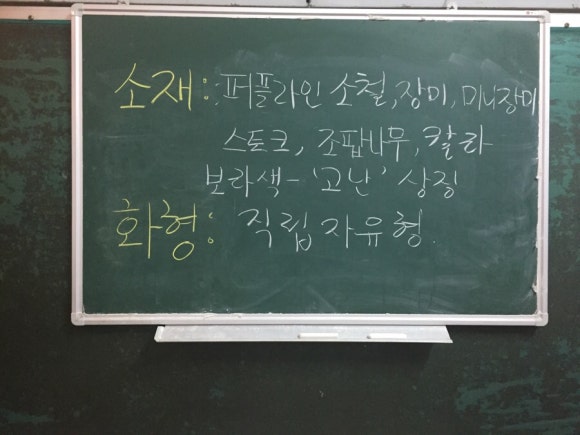 소재: 퍼플라인 소철, 장미, 미니장미
스토크, 조팝나무, 칼라
보라색 - '고난' 상징
화형: 직립 자유형.